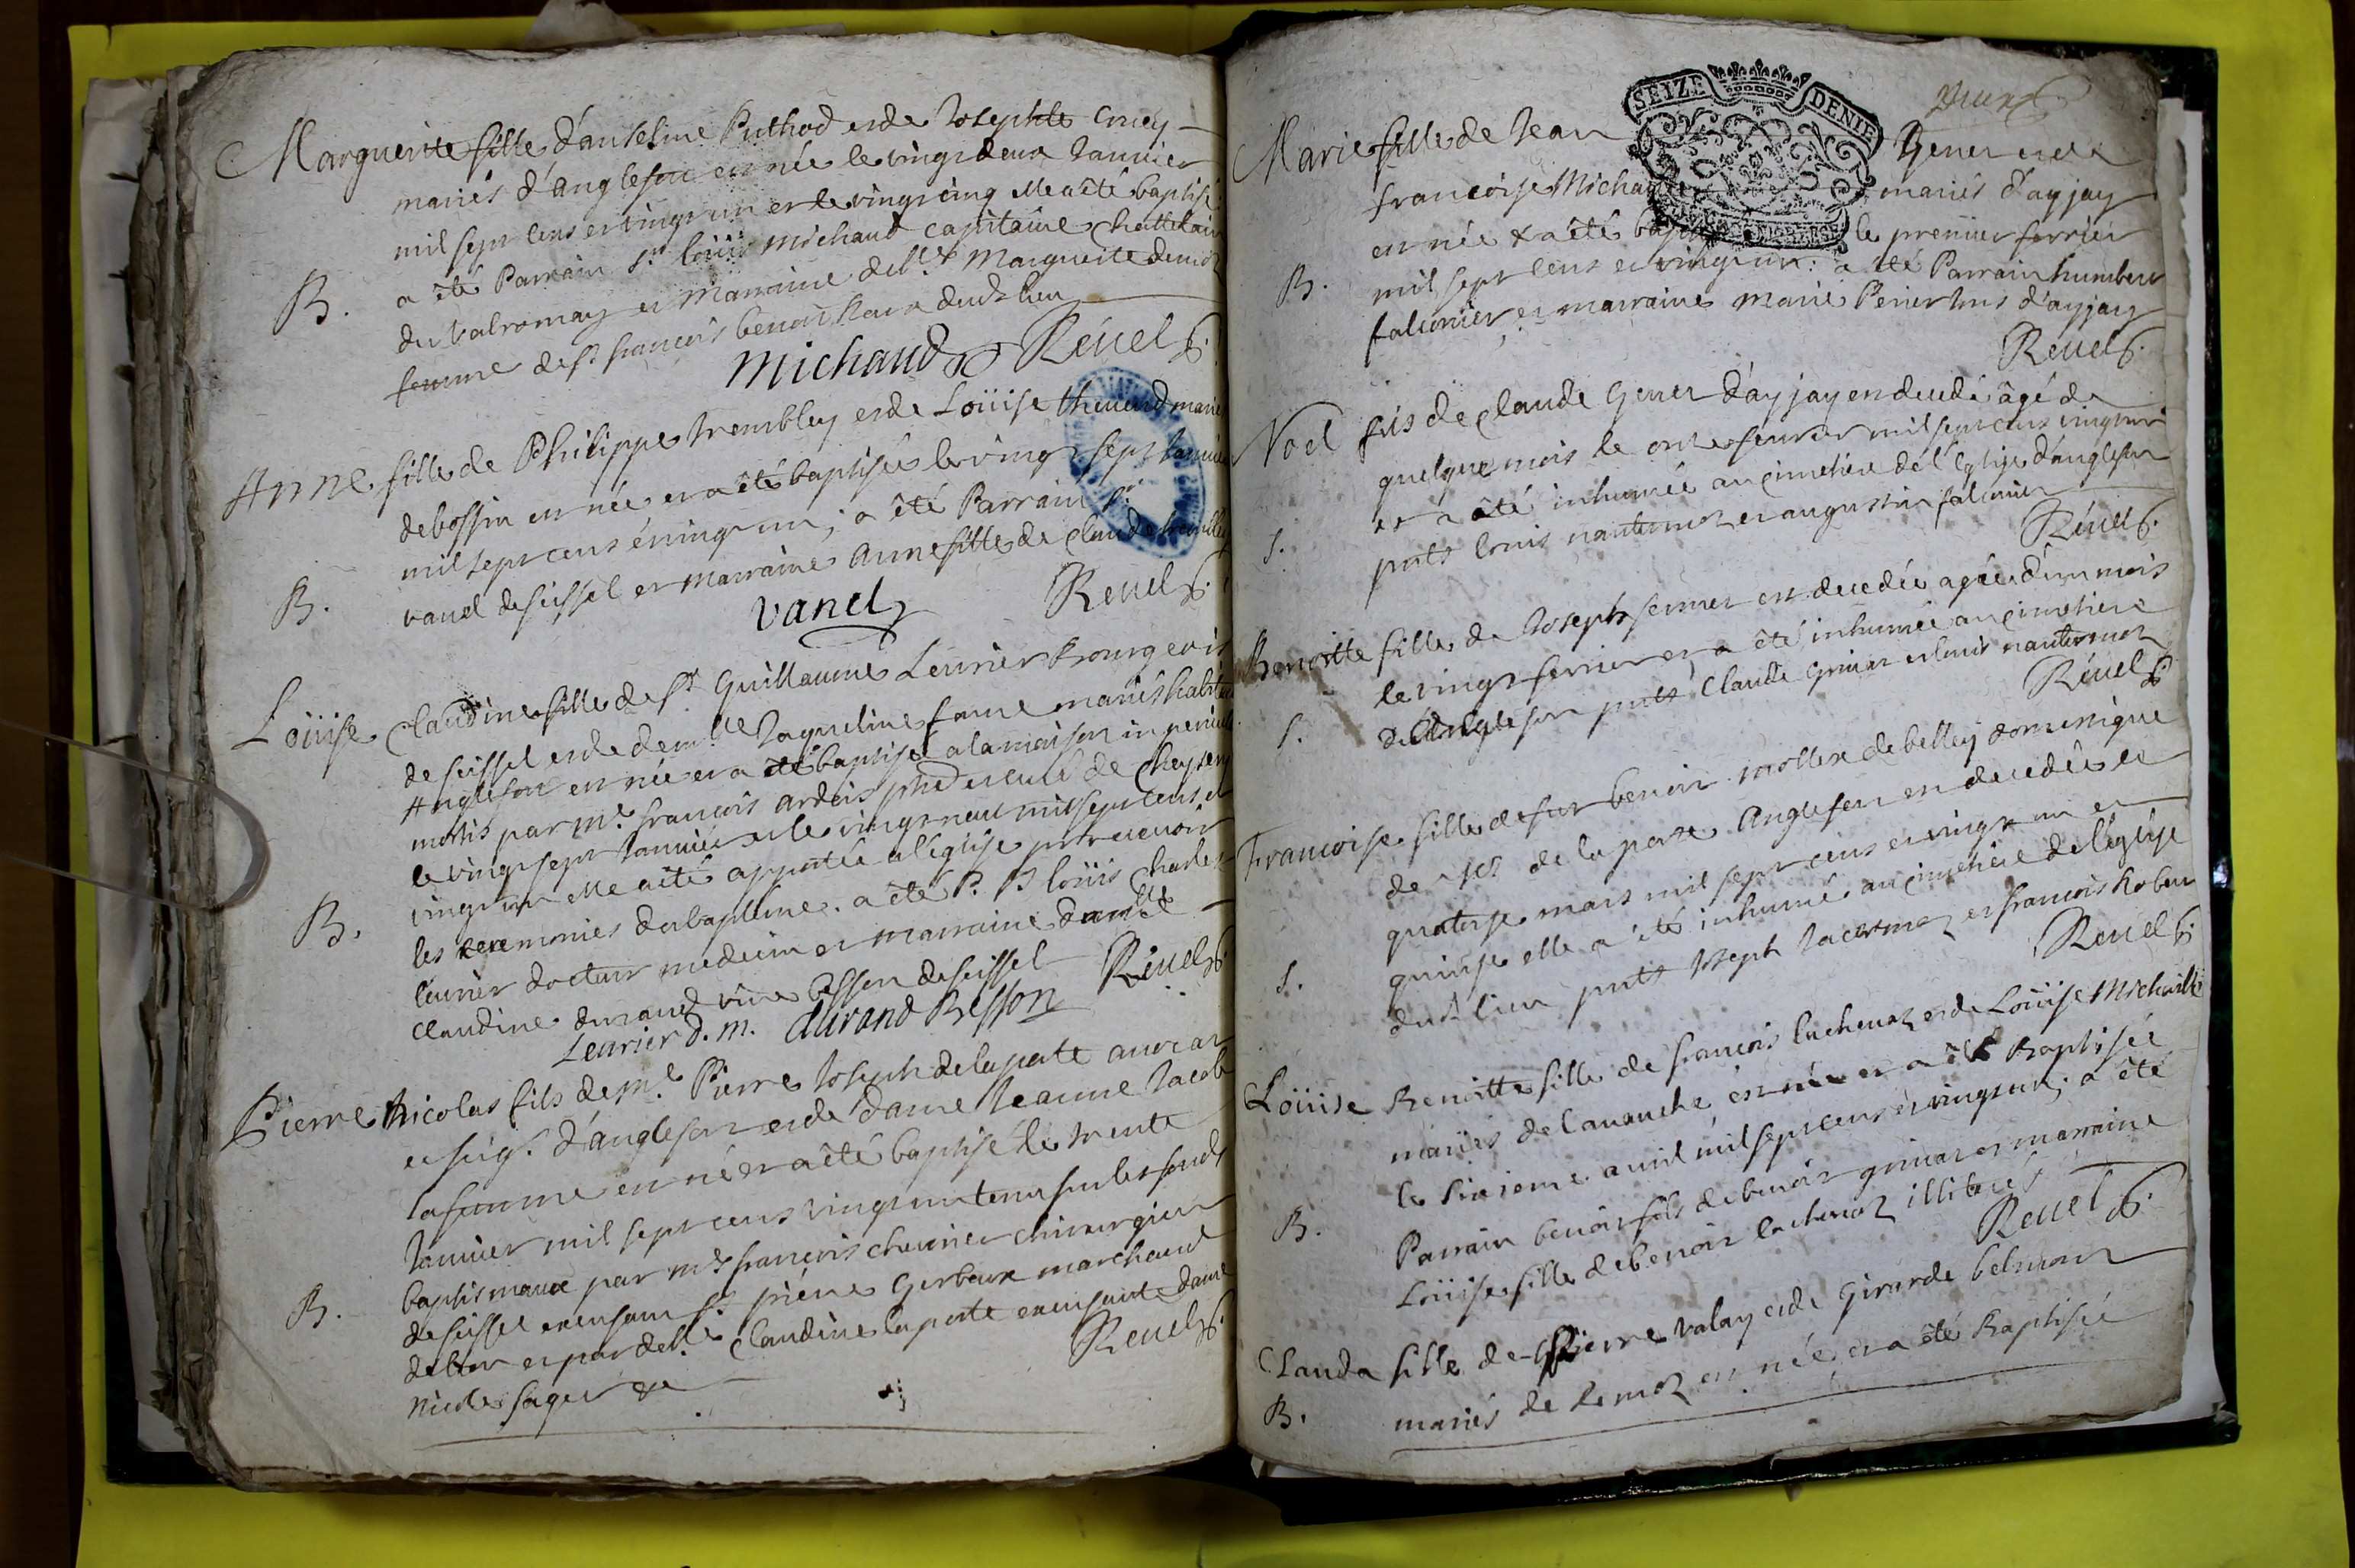 Marguerite fille d'anselme Puthod et de Josephte Cruey
mariés d'anglefort est née le vingt deux Janvier
mil sept cens et vingt un et le vingt cinq elle a été baptisé
a été Parrain Sr. Loüis Michaud capitaine Chattelain
B.
du Valromay et Marraine delle Marguerite
femme de Sr. françois benoit dudt lieu
Michaud Reuel
Anne fille de Philippe trembley et de Loüise thevend mariés
de bossin est née et a été baptisée le vingt sept Janvier
mil sept cens et vingt un ; a été Parrain Sr.
B.
vanel de seissel et marraine Anne fille de Claude
vanel Reuel
Loüise Claudine fille de Sr. Guillaume Leurier Bourgeois
de seissel et de demlle Jaqueline faure mariés
Anglefort est née et a été baptisé a la maison in periculo
mortis par Mre. françois pbre et curé de Cheyseri
le vingt sept Janvier et le vingt neuf mil sept cens et
B.
vingt un elle a été apportée a l'église pr recevoir
les ceremonies du baptême. a été P. Sr. Loüis Charles
Leurier docteur medecin et marraine demlle
Claudine durand besson de seissel Reuel
Leurier D. M. durand Besson
Pierre Nicolas fils de Mr. Pierre Joseph delaporte avocat
et seigr. d'anglefort et de dame Jeanne Jacob
sa femme est né et a été baptisé le trente
Janvier mil sept cens vingt un tenu sur les fonds
baptismaux par Mre françois chirurgien
B.
de seissel Sr. pierre Gerbeux marchand
et par delle Claudine laporte dame
Nicole Reuel
SEIZE DENIE
Marie fille de Jean Gener et de
françoise Micha mariés d'ayjay
est née & a été bapt le premier fevrier
B.
mil sept cens et vingt un : a été Parrain humbert
falconier et marraine marie d'ayjay
Reuel
Noel fils de Claude Gener d'ayjay est decedé âgé de
quelque mois le onze feurier mil sept cens vingt un
et a été inhumé au cimetiere de l'eglise d'anglefort
S.
pnts Louis nantermoz et augustin falconier
Reuel
Benoitte fille de Joseph est decedée agée d'un mois
le vingt fevrier et a été inhumée au cimetiere
S.
d'Anglefort pnts Claude Grinar et louis nantermoz
Reuel
Francoise fille de feu benoit mollex de belley domestique
de Mr de la porte Anglefort est decedée le
quatorze mars mil sept cens et vingt un et
quinze elle a été inhumée au cimetiere de l'église
S.
dudt lieu pnts Joseph Jacermoz et françois
Reuel
Loüise Benoitte fille de françois lachenaz et de Loüise Michaille
mariés de Lavanche est née et a été Baptisée
le sixieme auril mil sept cens et vingt un ; a été
B.
Parrain benoit fils de benoit grinar et marraine
Loüise fille de benoit lachenaz illiterés
Reuel
Clauda fille de Pierre valay et de Girarde belmont
B.
mariés de est née et a été Baptisée